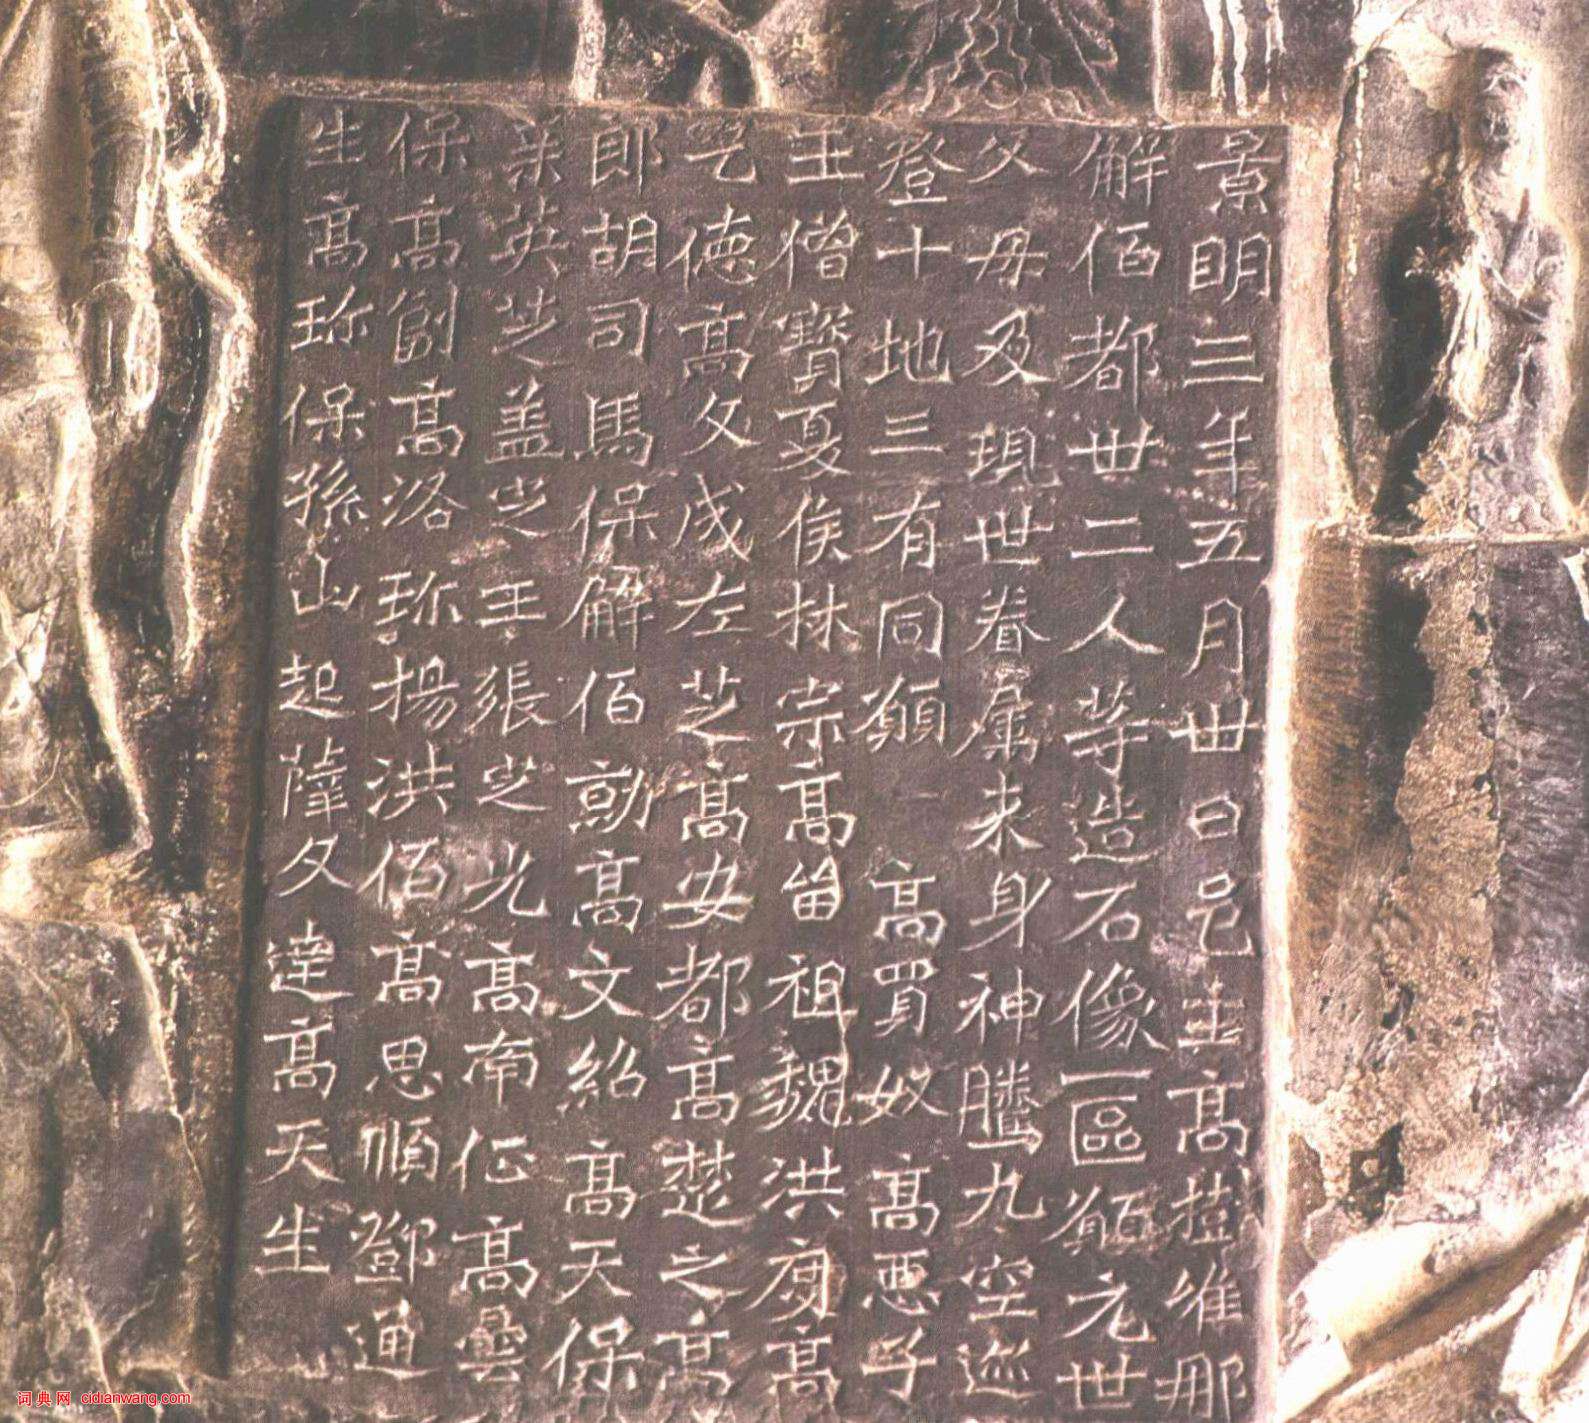 景明三年五月卅日邑主高樹維那
解佰都卅二人等造石像一區願元世
父母及現世眷属来身神騰九空迊
登十地三有同願 高買奴高悪子
王僧寶夏侯林宗高留祖魏洪度高
乞德高文成左芝高安都高楚之高
郎胡司馬保解佰勍高文紹高天保
英芝盖之王張芝光高南征高曇
保高創高洛珎楊洪佰高思順鄧通
生高珎保孫山起薩文達高天生
词典网 cidianwang.com